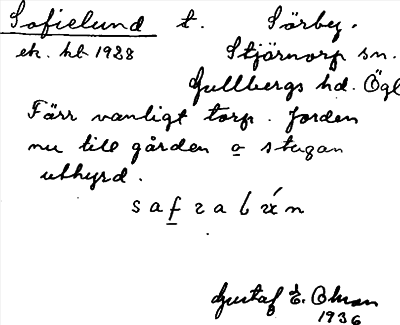 Sofielund t. Sörby.
ek. kb 1928 Stjärnorp sn.
Gullbergs hd. Ögl
Förr vanligt torp. Jorden
nu till gården o stugan
uthyrd.
Gustaf E. Ohman
1936